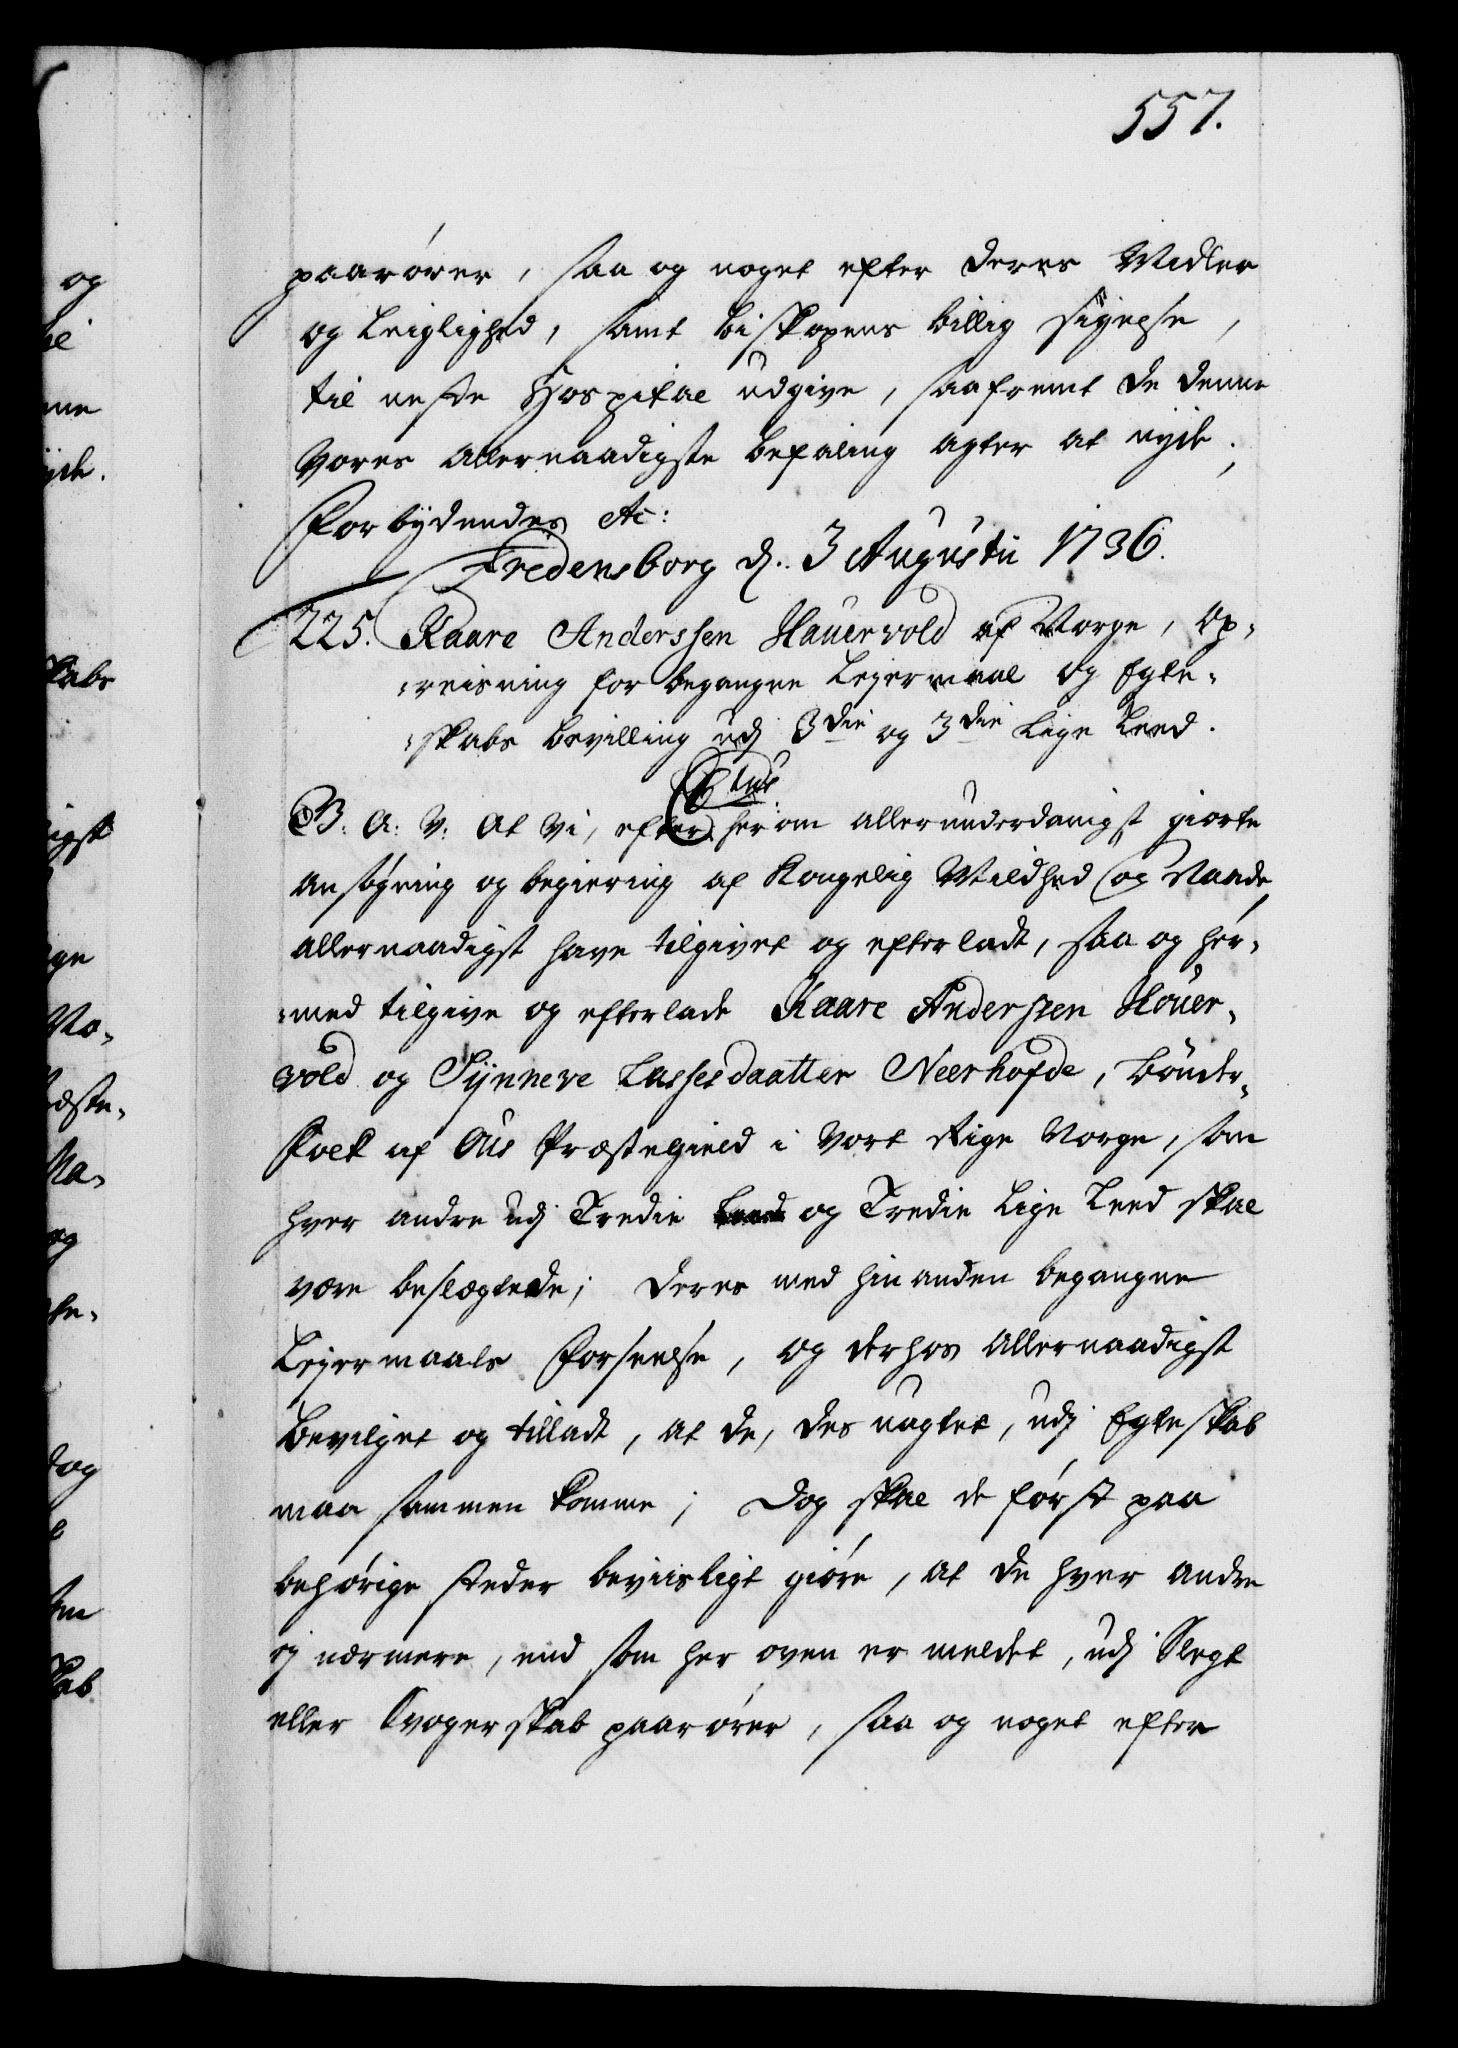 557.
paarører, saa og noget efter deres Midler
og Leiglighed, samt biskopens billig sigelse,
til neste Hospital udgive, saafremt de denne
Vores allernaadigste befaling agter at nyde;
Forbydendes etc:
Fredensborg d. 3 Augustii 1736.
225. Kaare Anderssen Hauervold af Norge, Op-
-reisning for begangne Leyermaal og Egte-
-skabs bevilling udj 3die og 3die Lige Leed.
G. A: V: At Vi, efter herom allerunderdanigst giorte
ansøgning og begiering af Kongelig Mildhed og Naade,
allernaadigst have tilgivet og efterladt, saa og her-
-med tilgive og efterlade Kaare Anderssen Houer-
vold og Synneve Lassesdaatter Neerhofde, bønder-
folk af Ous Præstegield i Vort Rige Norge, som
hver andre udj Tredie og Tredie Lige Leed skal
være beslægtede; deres med hinanden begangne
Leyermaals Forseelse, og derhos Allernaadigst
bevilget og tilladt, at de, des uagtet, udj Egteskab
maa sammen komme; Dog skal de først paa
behørige steder beviisligt giøre, at de hver andre
ej nærmere, end som her oven er meldet, udj Slegt
eller Svogerskab paarører, saa og noget efter
og
ne
yde.
skabs
igst
ge
No-
æste-
Ma-
og
te-
dog
om
skab